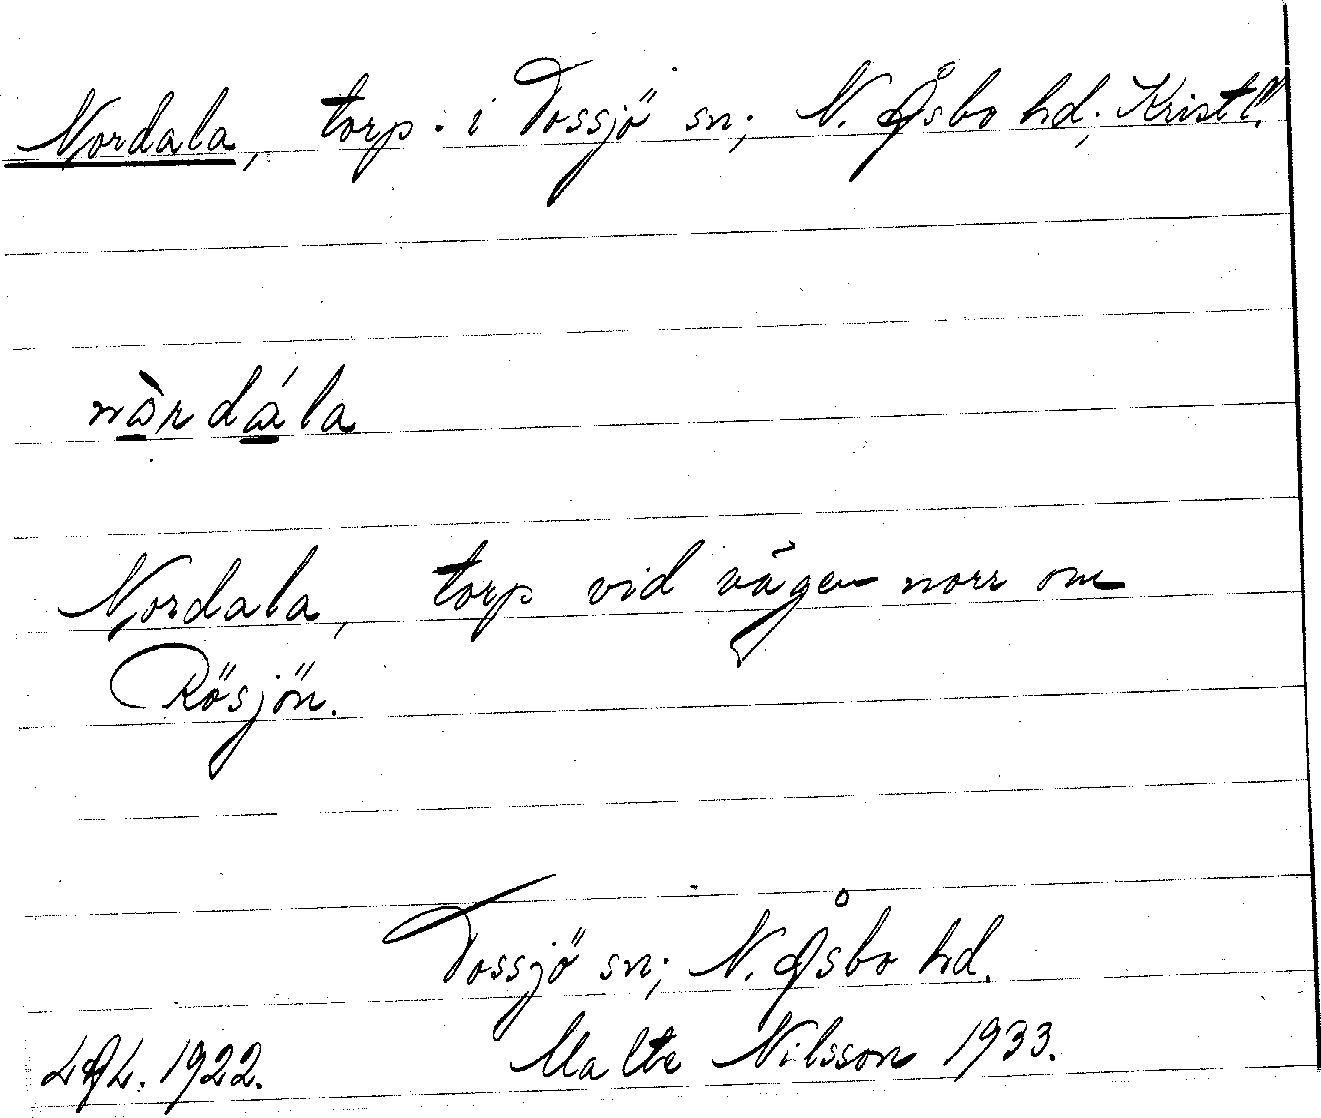 Nordala, torp i Tossjö sn; N. Åsbo hd; Kristl.
nòrdála
Nordala, torp vid vägen norr om
Rösjön.
Tossjö sn; N. Åsbo hd.
LAL. 1922. Malte Nilsson 1933.